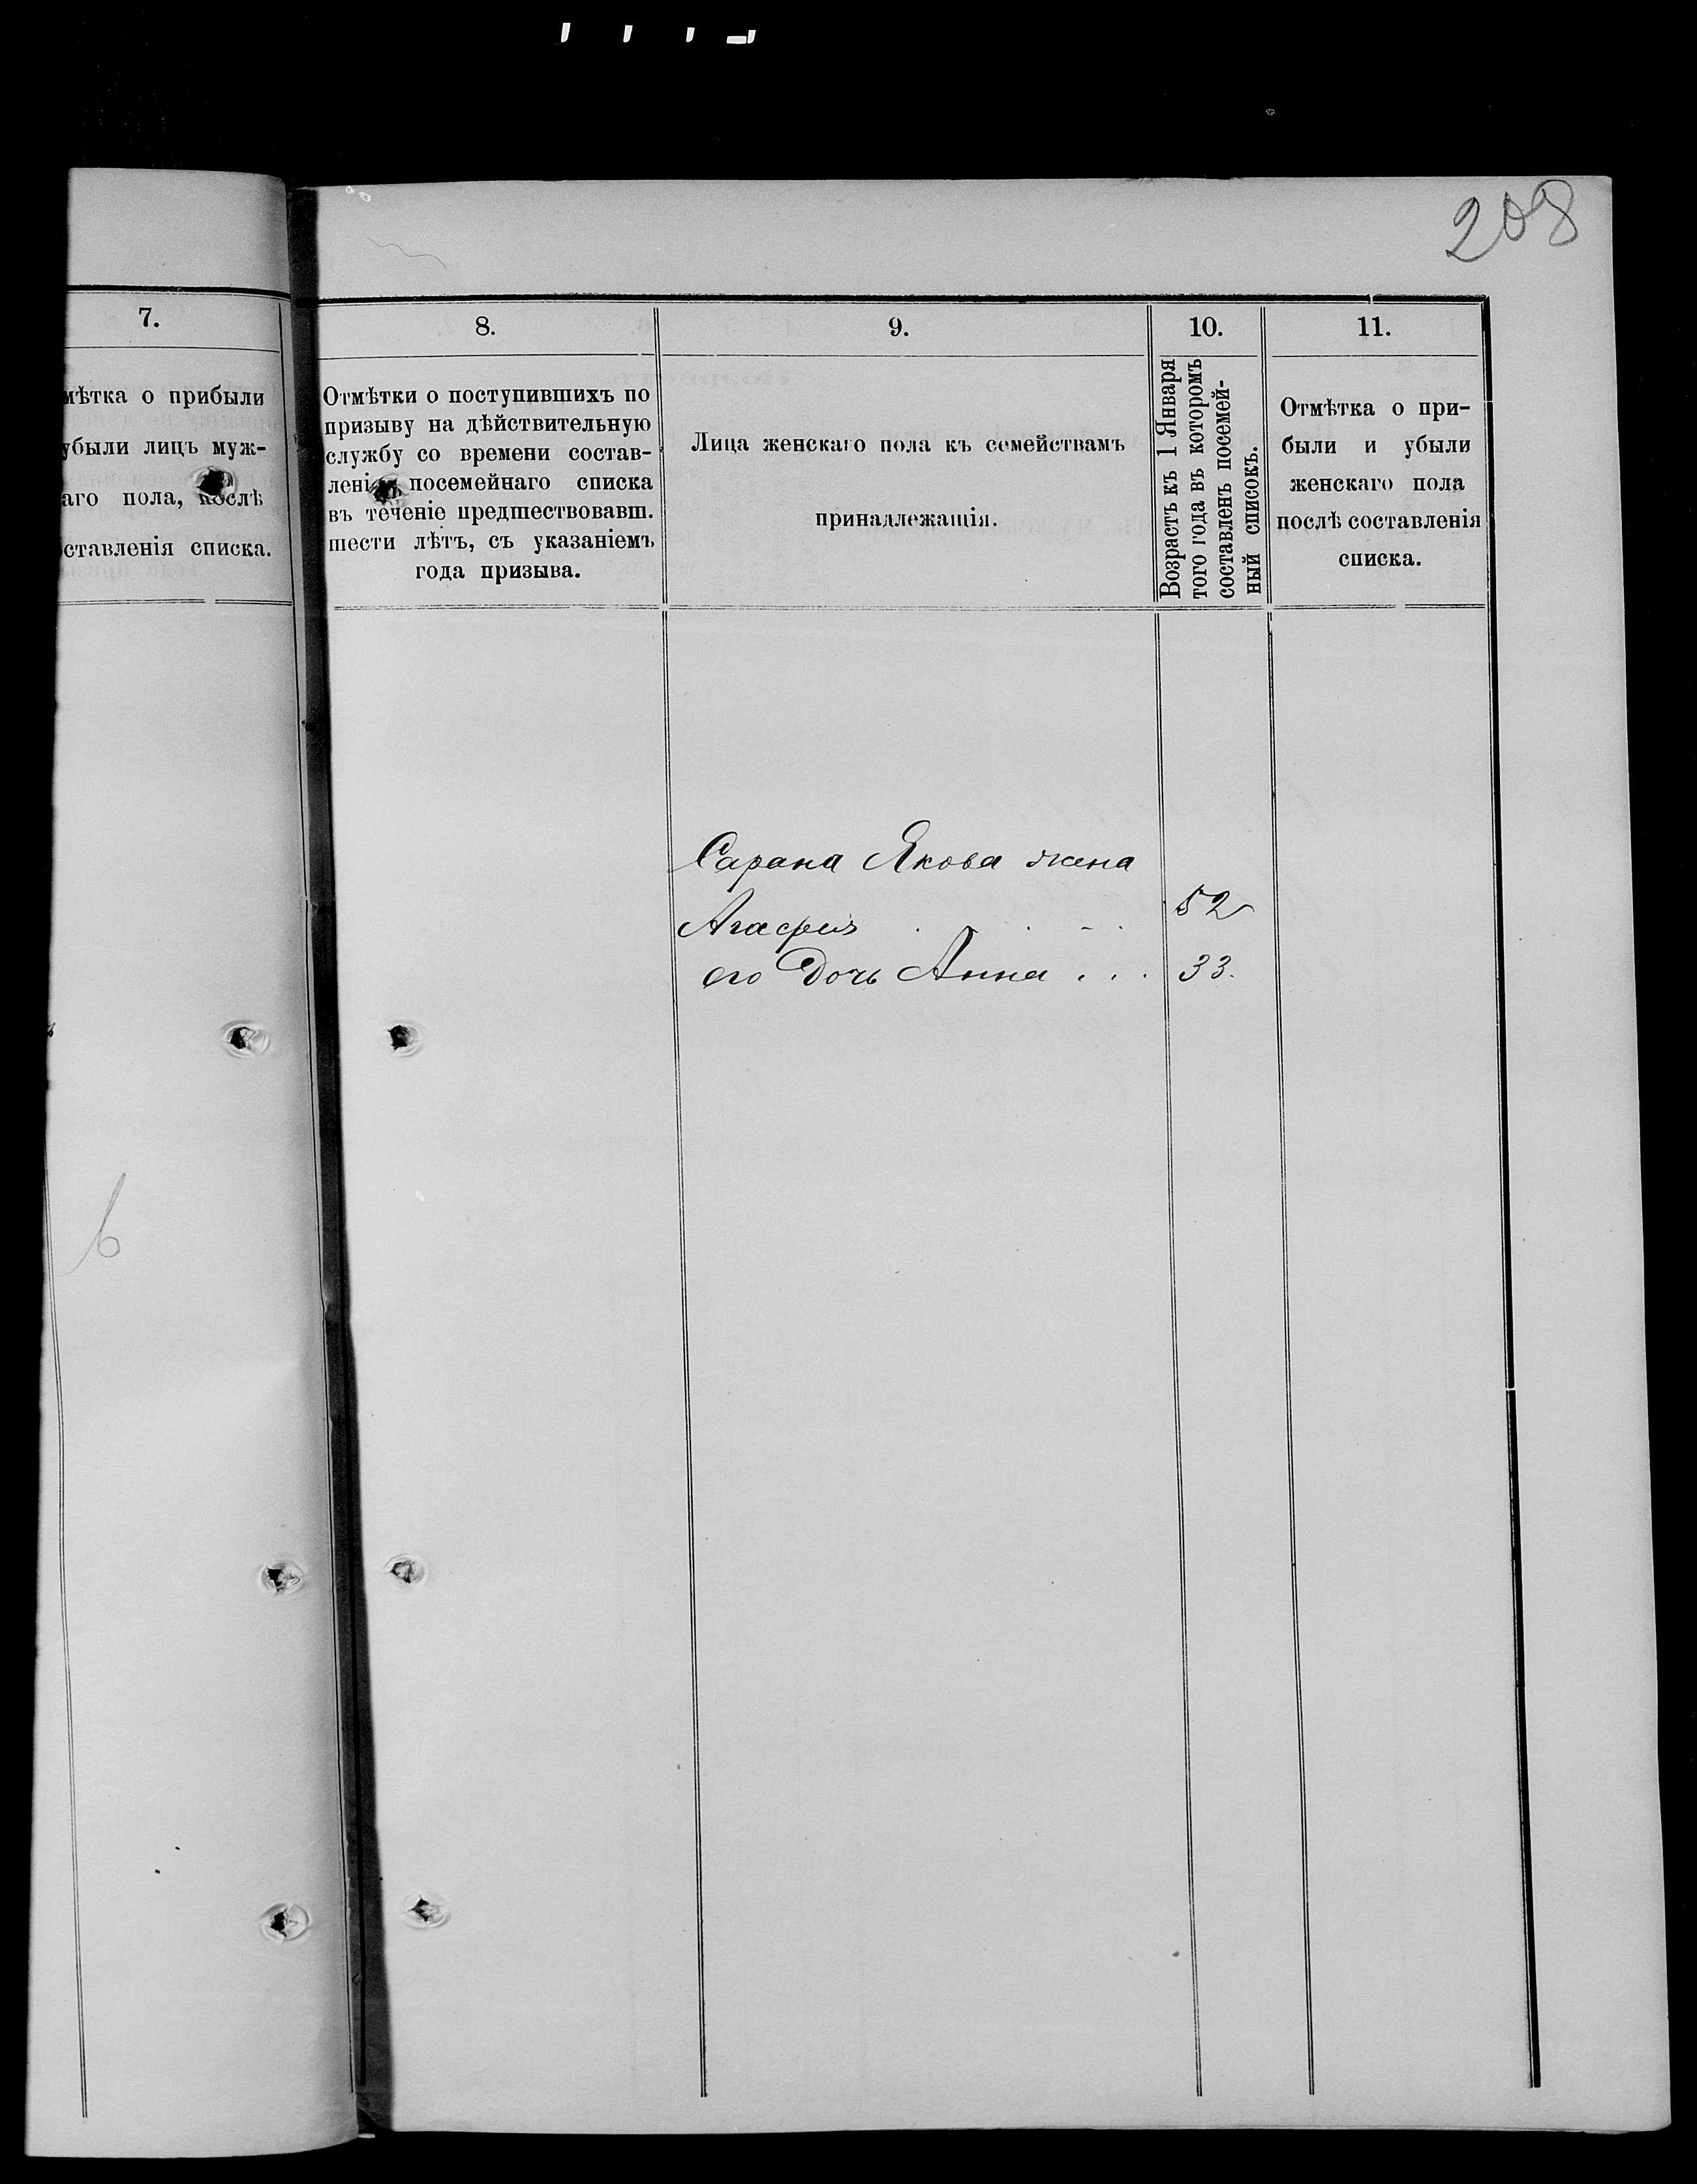 208
7.
мѣтка о прибыли
убыли лицъ муж-
аго пола, послѣ
ставленія списка.
8.
Отмѣтки о поступившихъ по
призыву на дѣйствительную
службу со времени состав-
посемейнаго списка
въ теченіе предшествовавш.
шести лѣтъ, съ указаніемъ
года призыва.
9.
Лица женскаго пола къ семействамъ
принадлежащія.
10.
Возрастъ къ 1 Января
того года въ которомъ
составленъ посемей-
ный списокъ.
11.
Отмѣтка о при-
были и убыли
женскаго пола
послѣ составленія
списка.
Сарана Якова жена
Агафия . . - . 52
его Дочь Анна . . . 33.
6